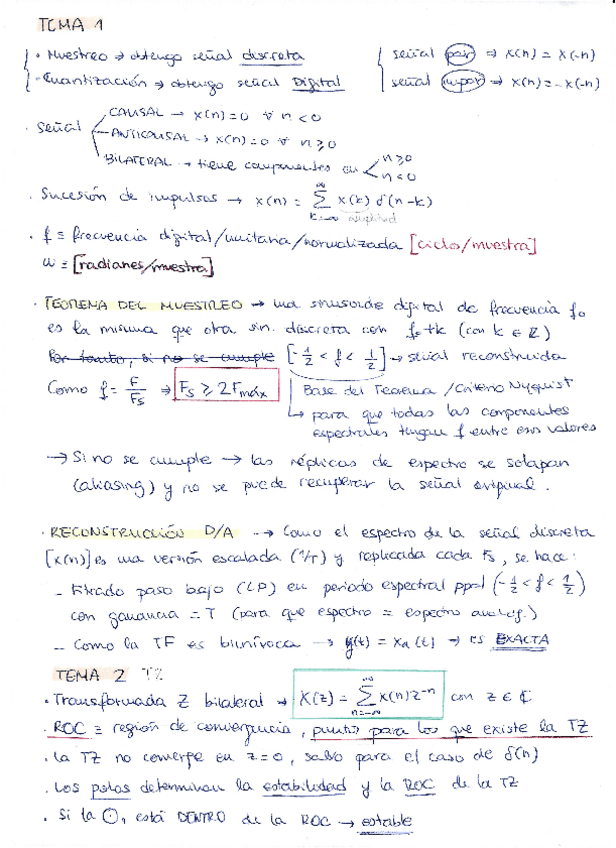 TEMA 1
· Muestreo → obtengo señal discreta
· Cuantización → obtengo señal Digital
señal par ⇒ x(n) = x(-n)
señal impar ⇒ x(n) = -x(-n)
· señal
CAUSAL → x(n)=0 ∀ n<0
ANTICAUSAL → x(n)=0 ∀ n≥0
BILATERAL → tiene componentes en n≥0 n<0
· Sucesión de impulsos → x(n) = ∑ x(k) δ(n-k)
k=-∞ amplitud
· f ≡ frecuencia digital/unitaria/normalizada [ciclos/muestra]
ω ≡ [radianes/muestra]
· TEOREMA DEL MUESTREO → una sinusoide digital de frecuencia f₀
es la misma que otra sin. discreta con f₀+k (con k ∈ Z)
Por tanto, si no se cumple [-1/2 < f < 1/2] → señal reconstruida
Como f = F/Fs ⇒ Fs ≥ 2Fmáx
Base del Teorema / Criterio Nyquist
↳ para que todas las componentes
espectrales tengan f entre esos valores
→ Si no se cumple → las réplicas de espectro se solapan
(aliasing) y no se puede recuperar la señal original.
· RECONSTRUCCIÓN D/A → Como el espectro de la señal discreta
[x(n)] es una versión escalada (1/T) y replicada cada Fs, se hace:
- Filtrado paso bajo (LP) en periodo espectral ppal (-1/2 < f < 1/2)
con ganancia = T (para que espectro = espectro analóg.)
- Como la TF es biunívoca → y(t) = xa(t) → es EXACTA
TEMA 2 TZ
· Transformada Z bilateral → X(z) = ∑ x(n) z⁻ⁿ con z ∈ ℂ
n=-∞
· ROC ≡ región de convergencia, puntos para los que existe la TZ
· La TZ no converge en z=0, salvo para el caso de δ(n)
· Los polos determinan la estabilidad y la ROC de la TZ
· Si la ◯, está DENTRO de la ROC → estable